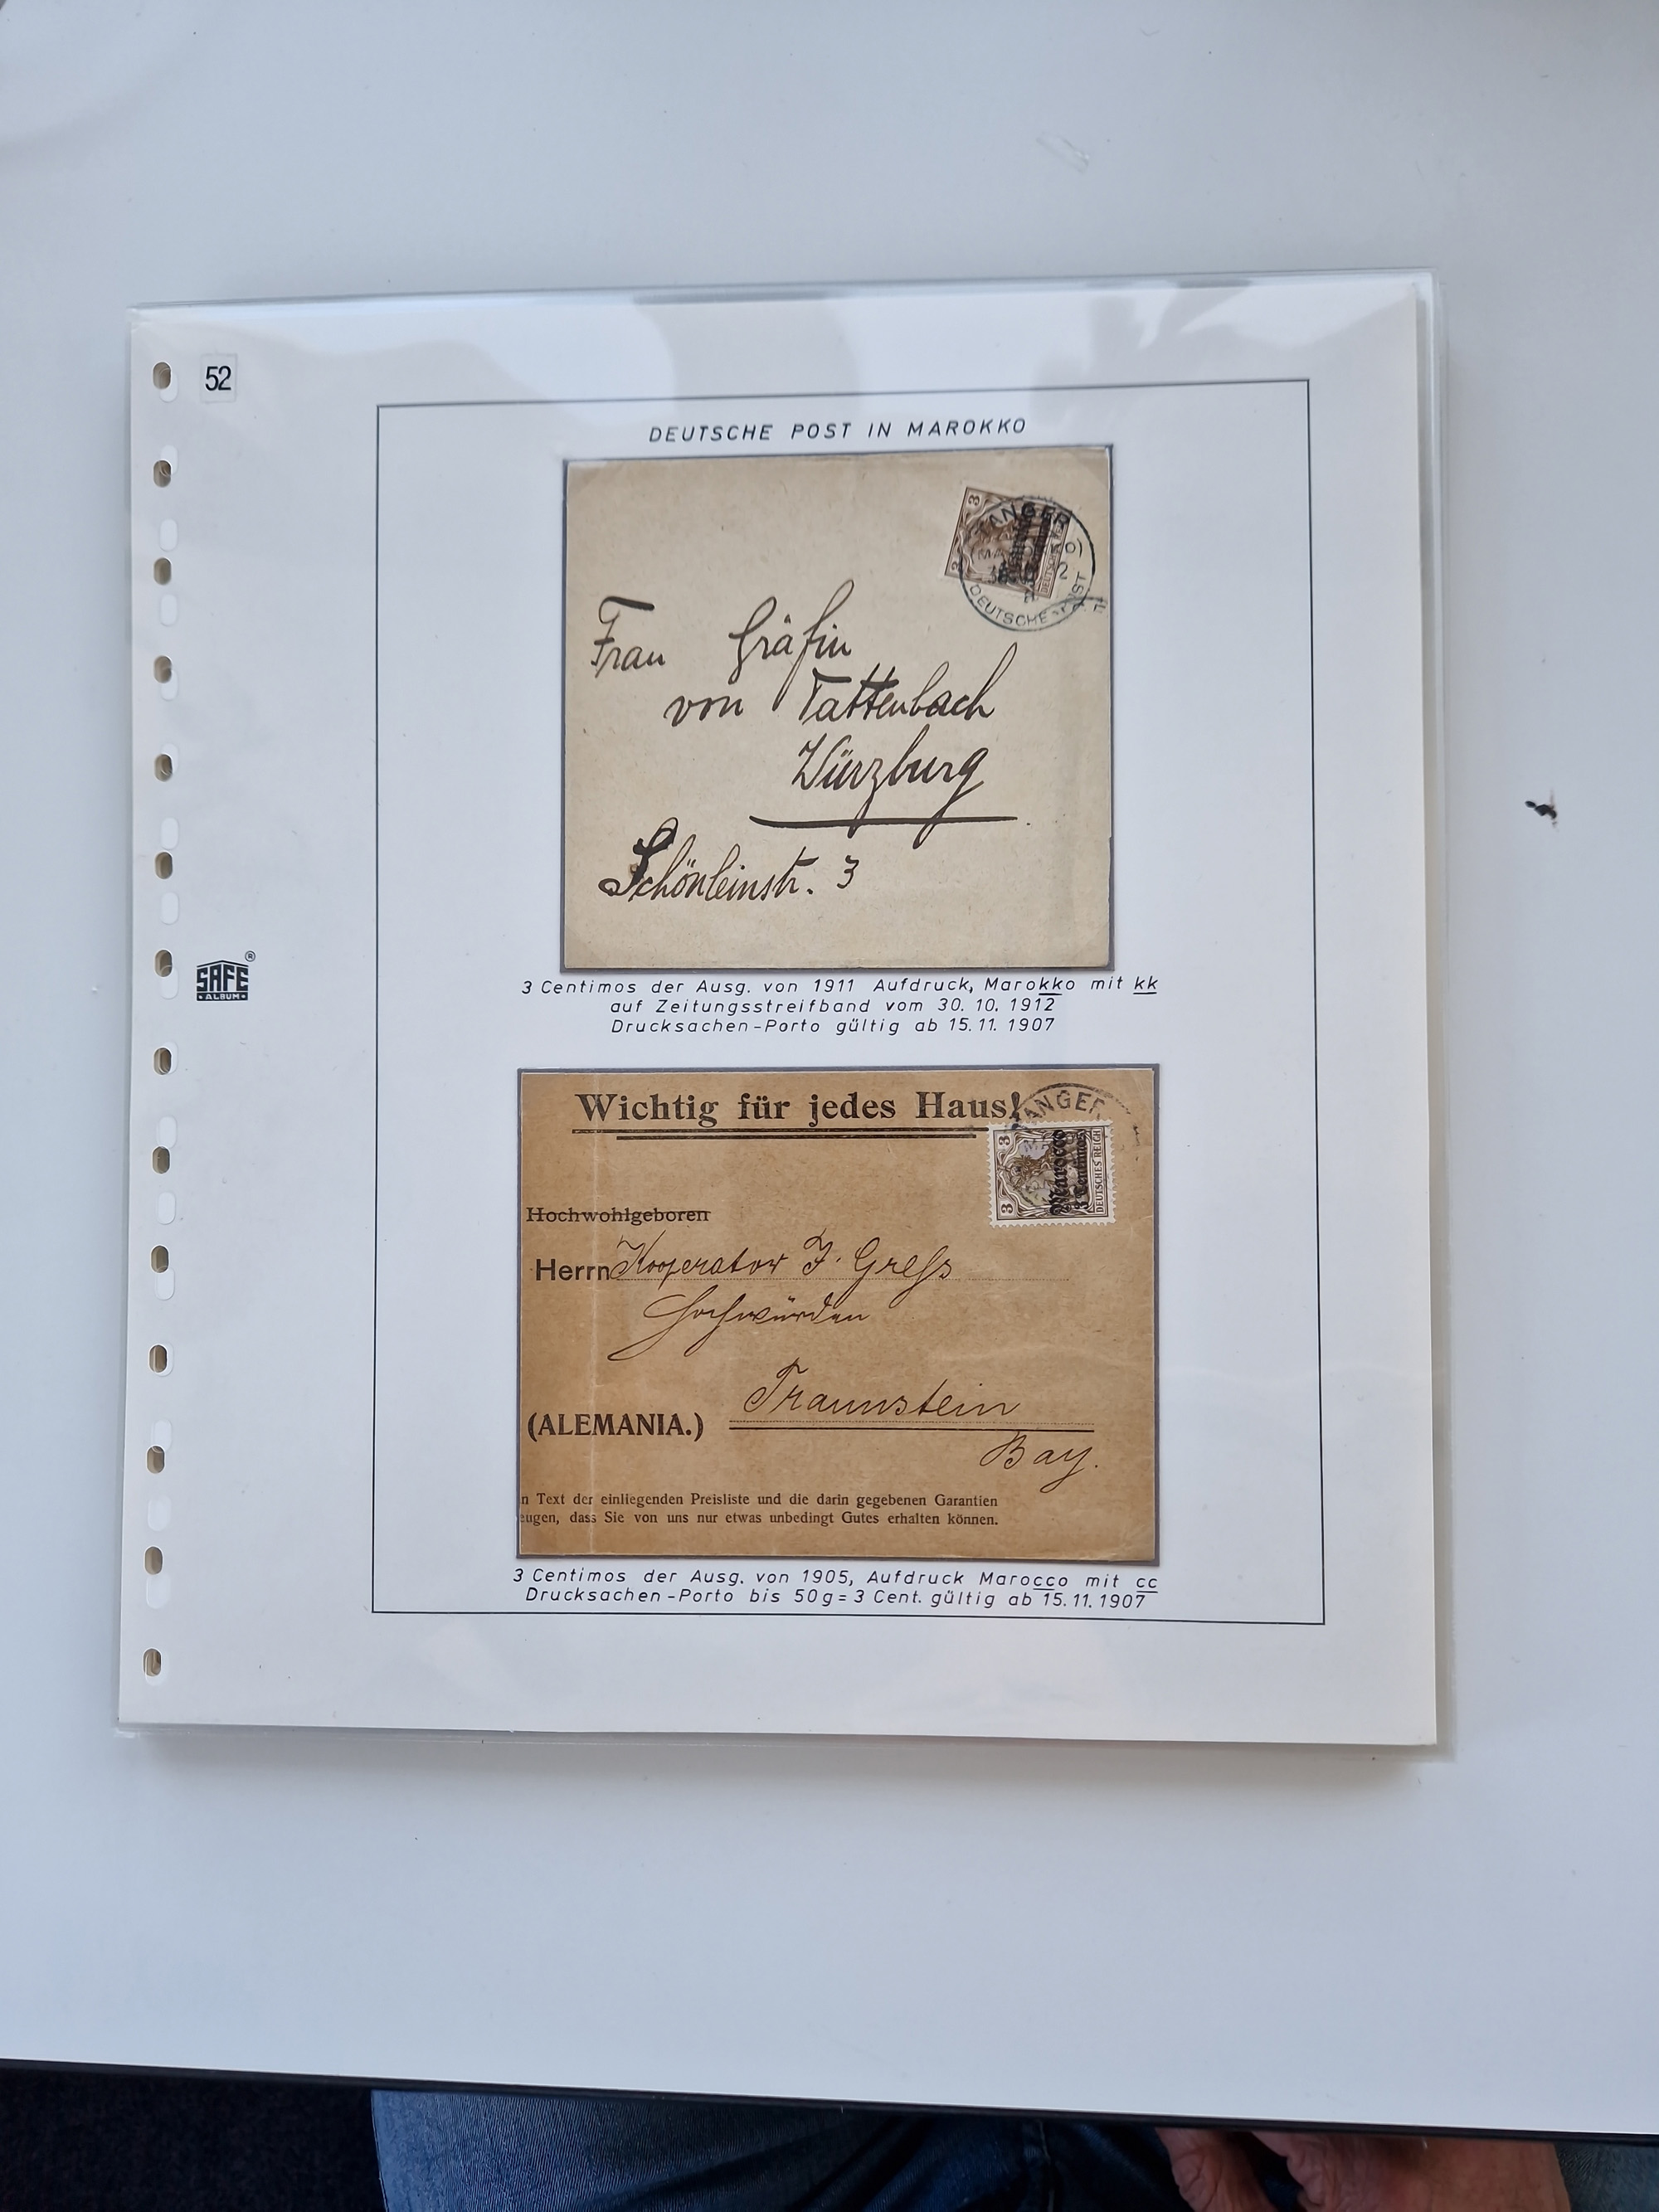 52
DEUTSCHE POST IN MAROKKO
3
3
TANGER
DEUTSCHE POST
Frau Gräfin
von Tattenbach
Würzburg
Schönleinstr. 3
3 Centimos der Ausg. von 1911 Aufdruck, Marokko mit kk
auf Zeitungsstreifband vom 30. 10. 1912
Drucksachen-Porto gültig ab 15. 11. 1907
SAFE®
ALBUM
Wichtig für jedes Haus!
TANGER
3
3
Marocco
3 Centimos
DEUTSCHES REICH
Hochwohlgeboren
Herrn Kooperator J. Greſs
Hochwürden
Traunstein
(ALEMANIA.)
Bay.
n Text der einliegenden Preisliste und die darin gegebenen Garantien
eugen, dass Sie von uns nur etwas unbedingt Gutes erhalten können.
3 Centimos der Ausg. von 1905, Aufdruck Marocco mit cc
Drucksachen-Porto bis 50g = 3 Cent. gültig ab 15. 11. 1907